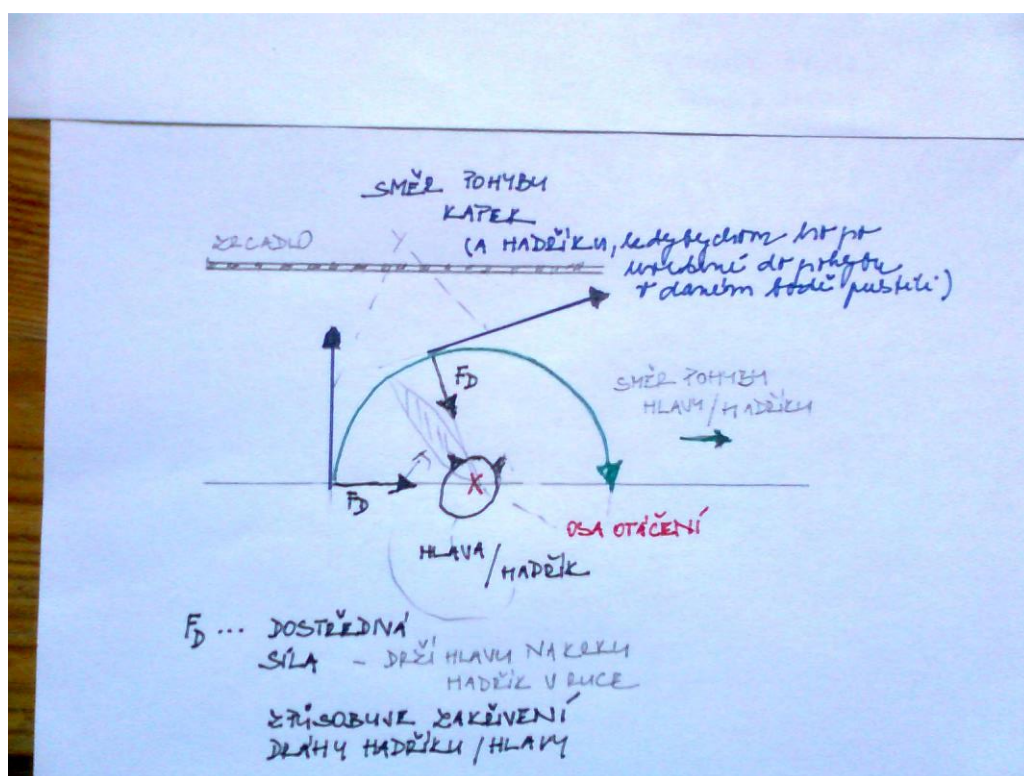 SMĚR POHYBU
KAPEK
(A HADŘÍKU, kdybychom ho po
uvedení do pohybu
v daném bodě pustili)
ZRCADLO
F_D
SMĚR POHYBU
HLAVY/HADŘÍKU
F_D
X
OSA OTÁČENÍ
HLAVA/HADŘÍK
F_D ... DOSTŘEDIVÁ
SÍLA – DRŽÍ HLAVU NA KRKU
HADŘÍK V RUCE
ZPŮSOBUJE ZAKŘIVENÍ
DRÁHY HADŘÍKU/HLAVY